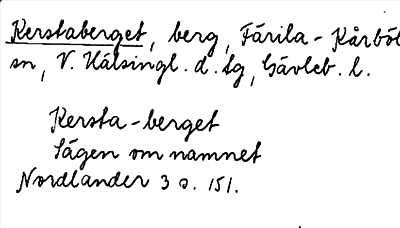 Kerstaberget, berg, Färila - Kårböl
sn, V. Hälsingl. d. tg, Gävleb. l.
Kersta-berget
Sägen om namnet
Nordlander 3 s. 151.